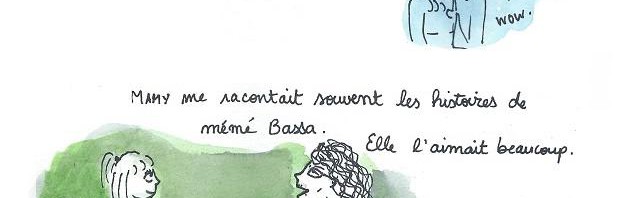 wow.
MAMY me racontait souvent les histoires de
mémé Bassa.
Elle l'aimait beaucoup.